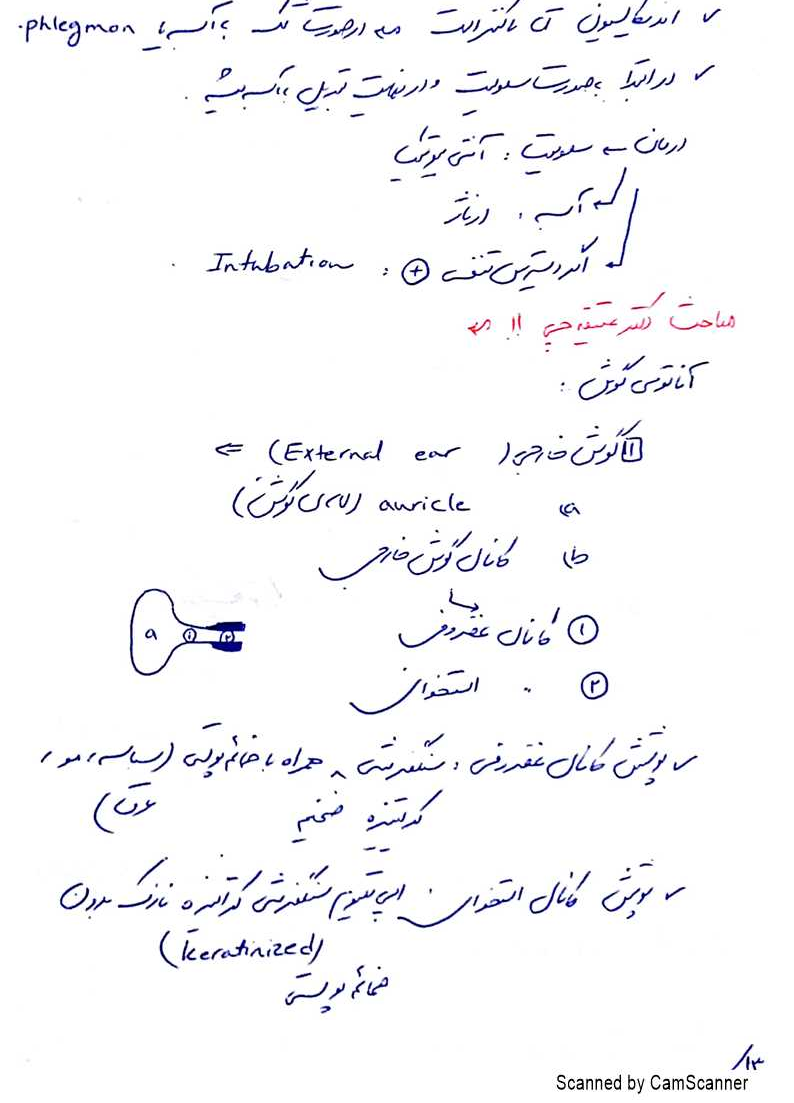 ✓ اندیکاسیون آن با کنتراست در صورت شک به آبسه یا phlegmon.
✓ در ابتدا بصورت سلولیت و در نهایت تبدیل به آبسه میشه.
درمان ← سلولیت : آنتی بیوتیک
← آبسه : درناژ
← اگر دیسترس تنفسی ⊕ : Intubation
مباحث دکتر !!
آناتومی گوش :
۱ گوش خارجی (External ear) ⇐
a) auricle (لاله‌ی گوش)
b) کانال گوش خارجی
① کانال غضروفی
② " استخوانی
a ① ②
✓ پوشش کانال غضروفی : سنگفرشی همراه با ضمائم پوستی (سباسه، مو،
کراتینیزه ضخیم عرق)
✓ پوشش کانال استخوانی : اپی تلیوم سنگفرشی کراتینیزه نازک بدون
(keratinized)
ضمائم پوستی
۱۳/
Scanned by CamScanner